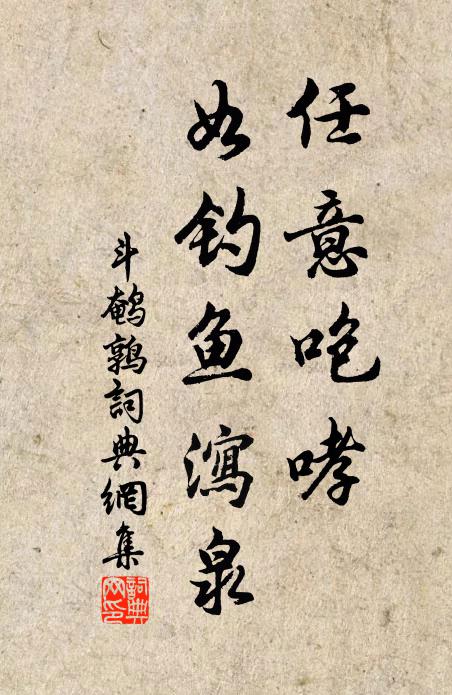 任意咆哮
如钓鱼瀉泉
斗鹌鹑詞典網集
詞典